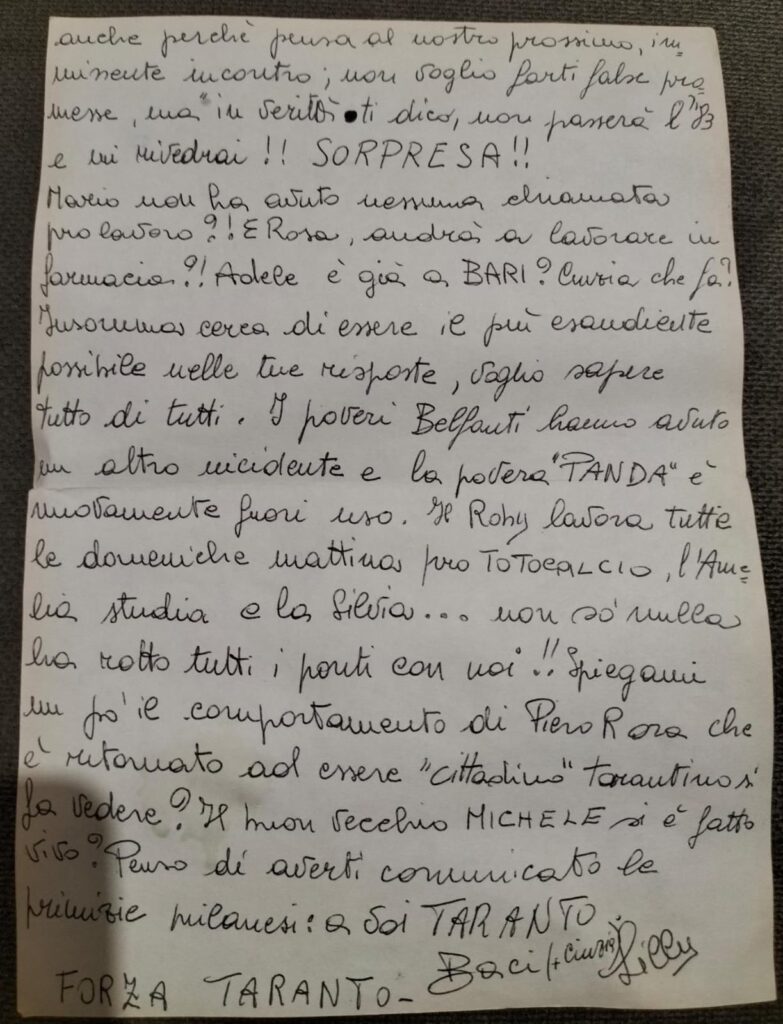 anche perchè pensa al nostro prossimo, im=
minente incontro; non voglio farti false pro=
messe, ma "in verità ti dico, non passerà l'83
e mi rivedrai!! SORPRESA!!
Mario non ha avuto nessuna chiamata
pro lavoro?! E Rosa, andrà a lavorare in
farmacia?! Adele è già a BARI? Cinzia che fa?
Insomma cerca di essere il più esaudiente
possibile nelle tue risposte, voglio sapere
tutto di tutti. I poveri Belfanti hanno avuto
un altro incidente e la povera "PANDA" è
nuovamente fuori uso. Il Roby lavora tutte
le domeniche mattina pro TOTOCALCIO, l'Ame=
lia studia e la Silvia... non sò nulla
ha rotto tutti i ponti con noi!! Spiegami
un pò il comportamento di Piero Rosa che
è ritornato ad essere "cittadino" tarantino si
fa vedere? Il buon vecchio MICHELE si è fatto
vivo? Penso di averti comunicato le
primizie milanesi: a voi TARANTO.
Baci (+ Cinzia) Lilly
FORZA TARANTO-